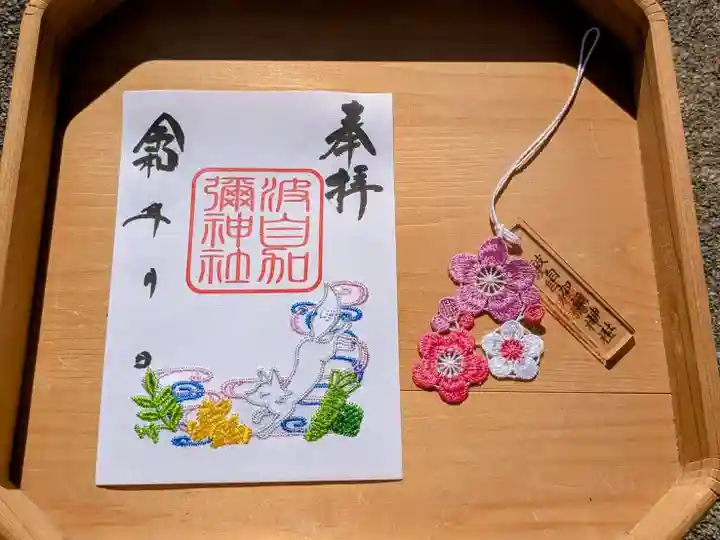 奉拝
波自加
彌神社
令和 年 月 日
波自加彌神社